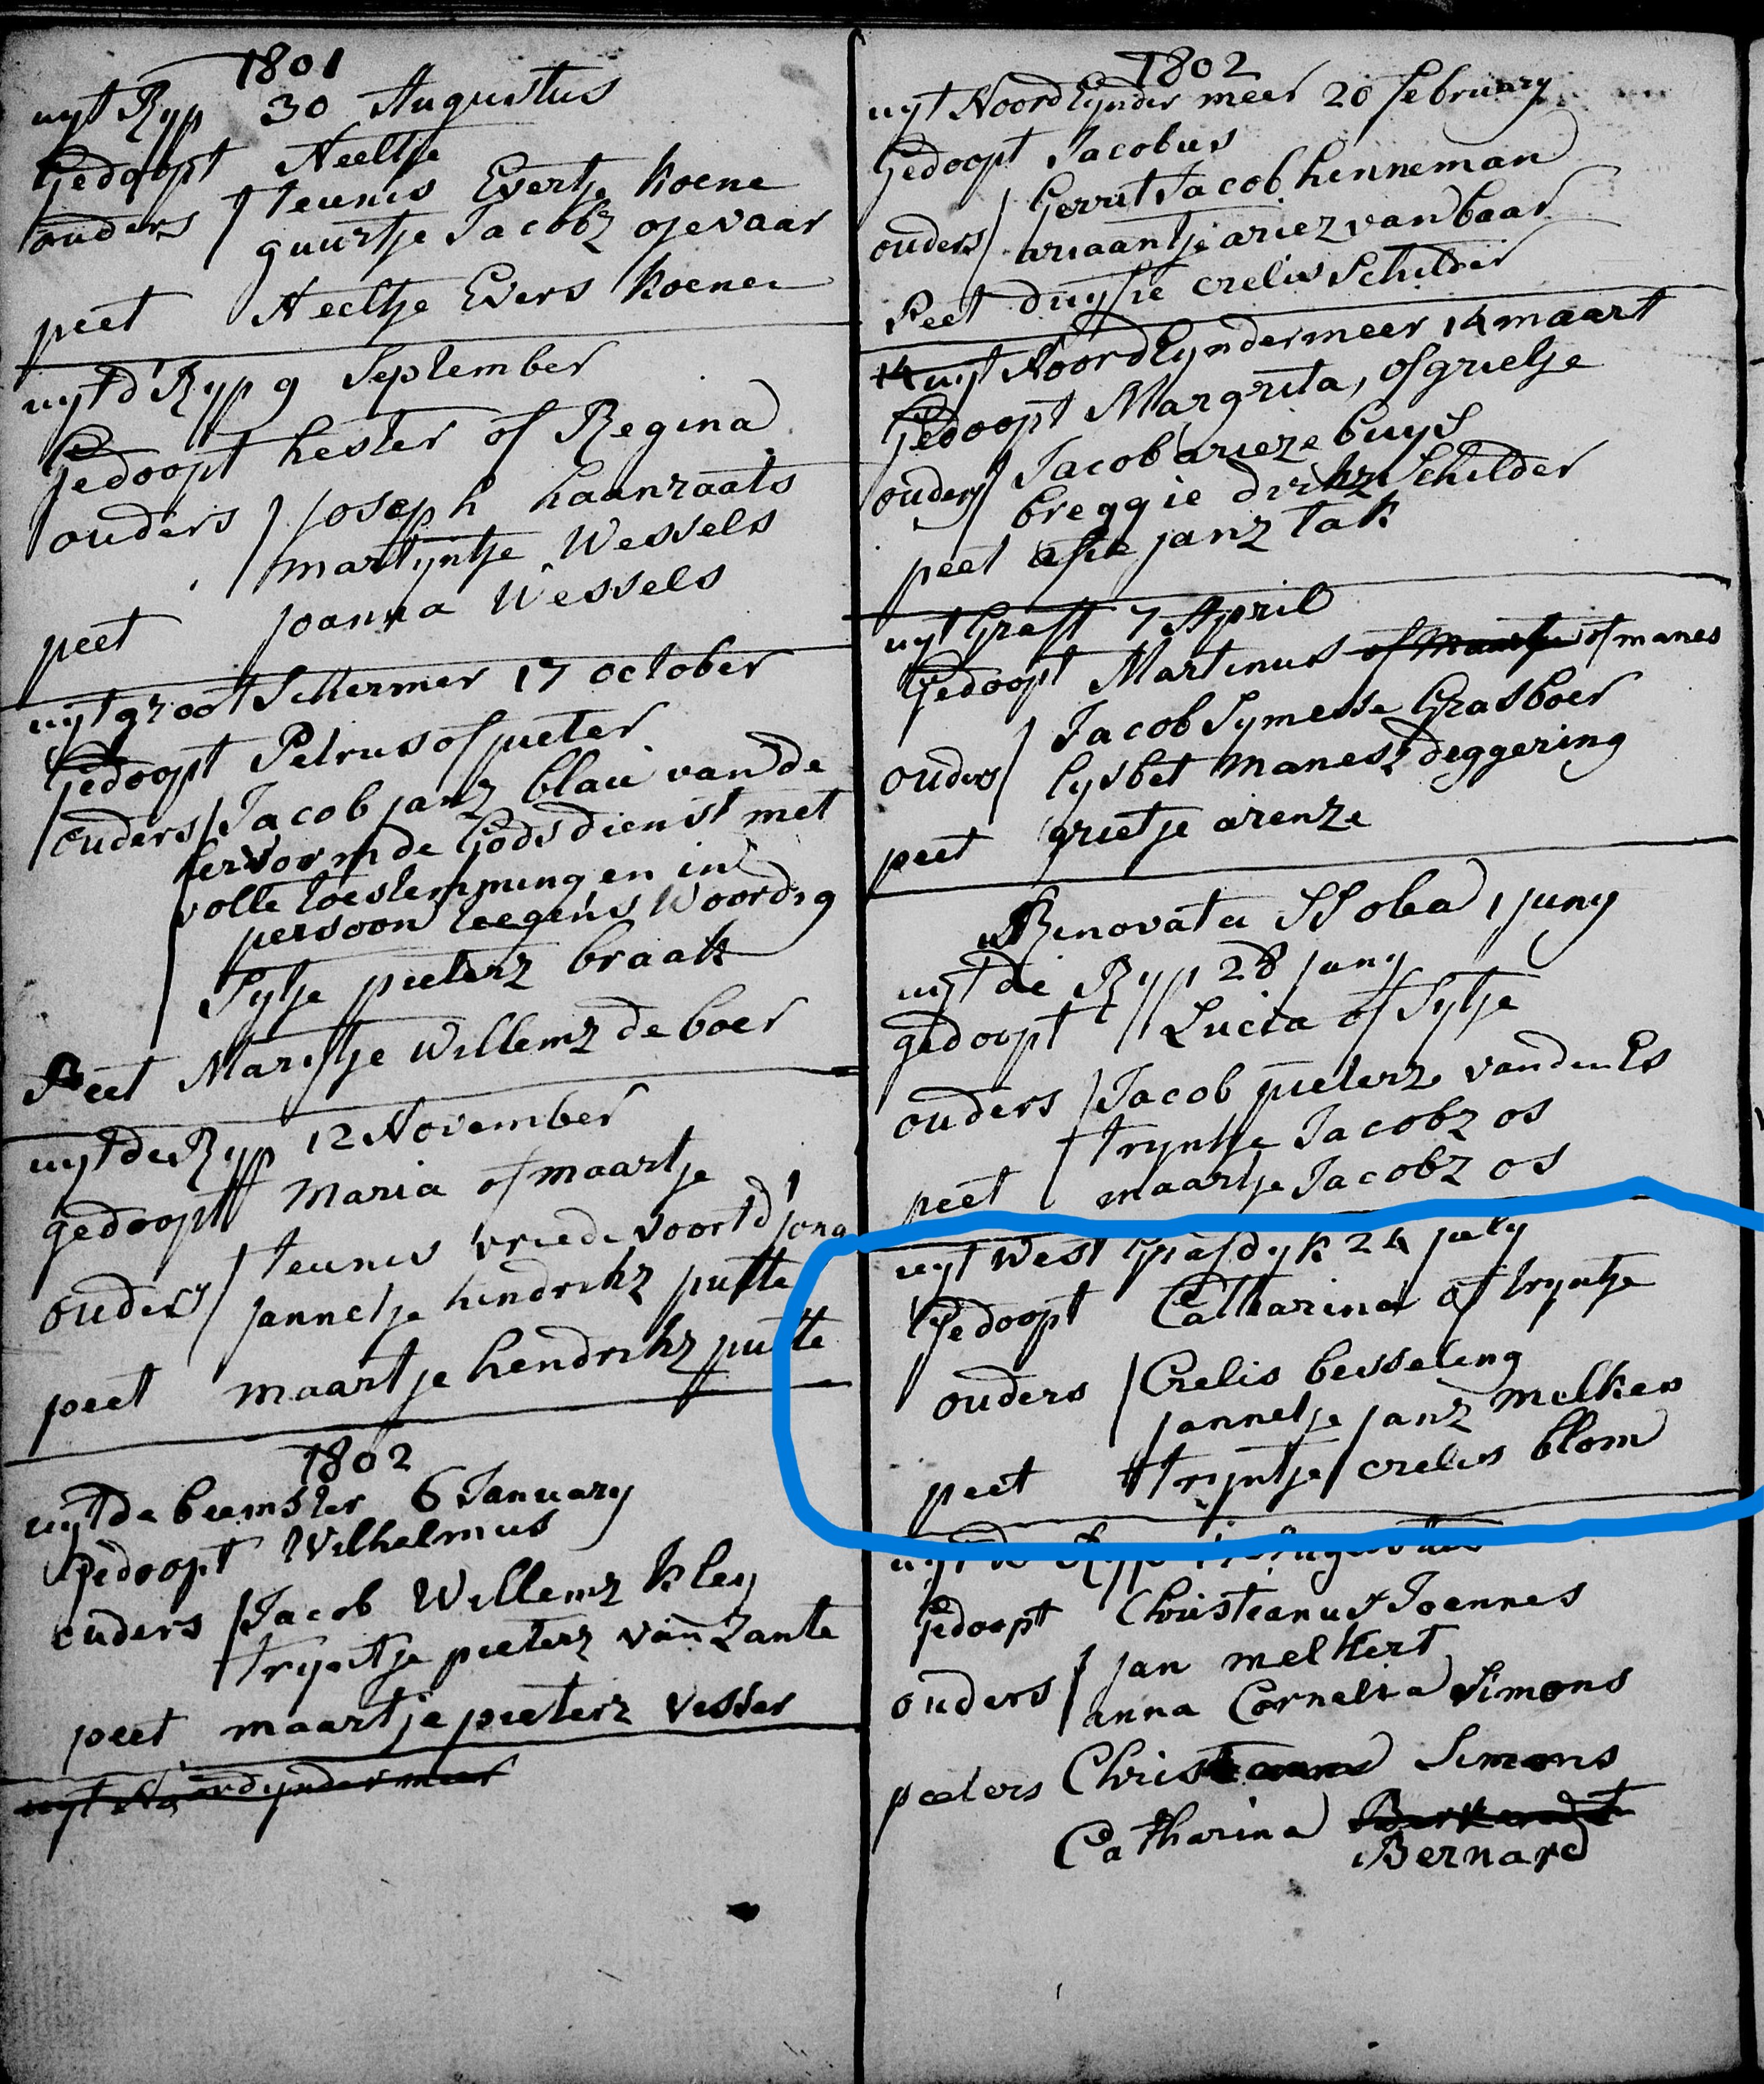 1801
uyt Ryp 30 Augustus
Gedoopt Neeltje
ouders / teunis Evertse Koene
guurtje Jacobz ojevaar
peet Neeltje Evers Koenen
uyt d'Ryp 9 September
Gedoopt hester of Regina
ouders / Joseph haanraats
martyntje Wessels
peet joanna Wessels
uyt groot Schermer 17 october
Gedoopt Petrus of pieter
ouders / Jacob janz blau van de
hervormde Godsdienst met
volle toestemming en in
persoon teegens Woordig
Sytje pieterz braak
Peet Marytje Willemz de boer
uyt de Ryp 12 November
gedoopt Maria of maartje
ouders / teunis vriedevoort d' jong
jannetje hendrikz putte
peet maartje hendrikz putte
1802
uyt de beemster 6 January
Gedoopt Wilhelmus
ouders / Jacob Willemz Kley
tryntje pieterz van Zante
peet maartje pieterz visser
uyt Noordynder meer
1802
uyt Noord Eynder meer 20 february
Gedoopt Jacobus
Gerrit Jacob henneman
ouders / ariaantje ariez van baar
Peet duysie crelis Schilder
14 uyt Noord Eynder meer 14 maart
Gedoopt Margrita, of grietje
ouders / Jacob arieze buys
breggie dirkz Schilder
peet afie janz tak
uyt Graft 7 April
Gedoopt Martinus of maartje of manes
Jacob Symesse Grasboer
ouders / lysbet manesz deggering
peet grietje arenze
Renovata SS olea 1 juny
uyt de Ryp 28 juny
gedoopt Lucia of Sytje
ouders / Jacob pieterz van den Es
tryntje Jacobz os
peet maartje Jacobz os
uyt West Grafdyk 24 july
Gedoopt Catharina of tryntje
ouders / Crelis besseling
jannetje janz melker
peet tryntje crelis blom
uyt de Ryp Augustus
Gedoopt Christianus Joennes
ouders / jan melkert
anna Cornelia Simons
peeters Simons
Catharina
Bernard